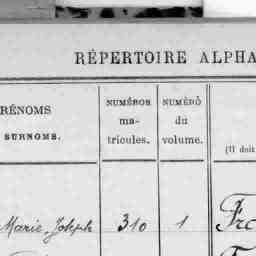 RÉPERTOIRE ALPHA
RÉNOMS
SURNOMS.
NUMÉROS
ma-
tricules.
NUMÉRO
du
volume.
(Il doit
Marie, Joseph 310 1